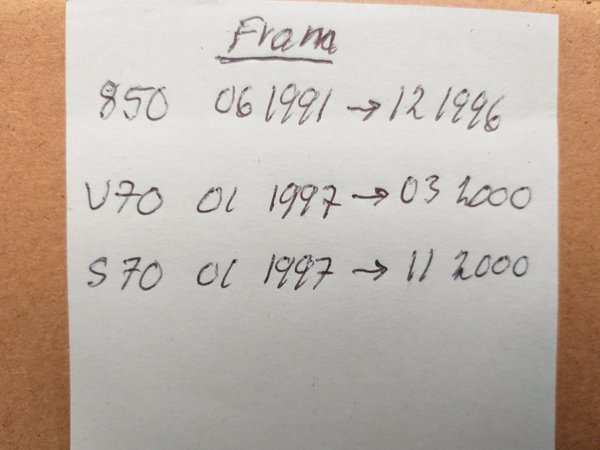 Fram
850 06 1991 → 12 1996
V70 01 1997 → 03 2000
S70 01 1997 → 11 2000